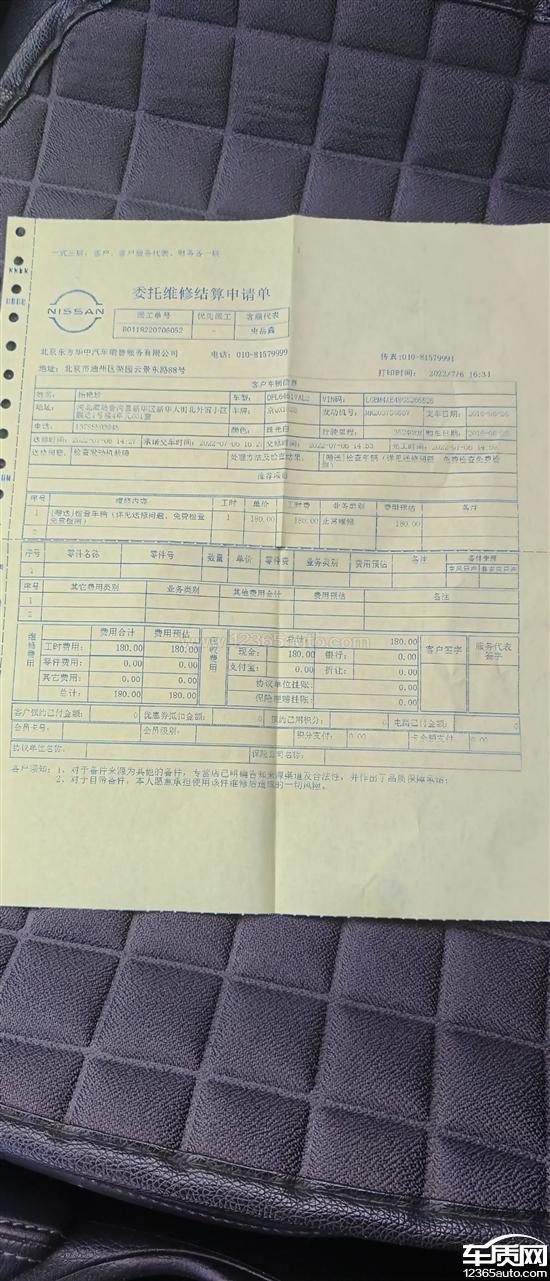 一式三联：客户、客户服务代表、财务各一联
NISSAN
委托维修结算申请单
派工单号 优先派工 客服代表
80118220706052 -
北京东方华中汽车销售服务有限公司 电话：010-81579999 传真：010-81579991
地址：北京市通州区梨园云景东路88号 打印时间：2022/7/6 16:31
客户车辆信息
姓名： 车型： VIN码：
地址： 车牌： 发动机号： 交车日期：
电话： 颜色：珠光白 行驶里程： 购车日期：
送修时间：2022-07-06 14:27 承诺交车时间：2022-07-06 交修时间：2022-07-06 14:53 完工时间：2022-07-06
送修问题： 检查发动机故障 处理方法及检查结果： [赠送]检查车辆（详见送修问题、免费检查免费检测）
推荐项目
序号 维修内容 工时 单价 工时费 业务类别 费用预估 备注
1 [赠送]检查车辆（详见送修问题、免费检查免费检测） 1 180.00 180.00 正常维修 180.00
2
序号 零件名称 零件号 数量 单价 零件费 业务类别 费用预估 备注 备件来源
1
序号 其它费用类别 业务类别 其他费用合计 费用预估 备注
1
2
维修费用 费用合计 费用预估 应收费用 总计： 180.00 客户签字 服务代表签字
工时费用： 180.00 180.00 现金： 180.00 银行： 0.00
零件费用： 0.00 0.00 支付宝： 0.00 折让： 0.00
其它费用： 0.00 0.00 协议单位挂账： 0.00
总计： 180.00 180.00 保险理赔挂账： 0.00
www.12365auto.com
客户预约已付金额： 0 优惠券抵扣金额： 0 预约已用积分： 0 电商已付金额： 0
会员卡号： 会员级别： 积分支付： 0.00 卡金额支付： 0.00
协议单位名称： 保险公司名称：
客户须知：1、对于备件来源为其他的备件，专营店已明确告知来源渠道及合法性，并作出了品质保障承诺；
2、对于自带备件，本人愿意承担使用该件维修后造成的一切风险。
车质网
12365auto.com